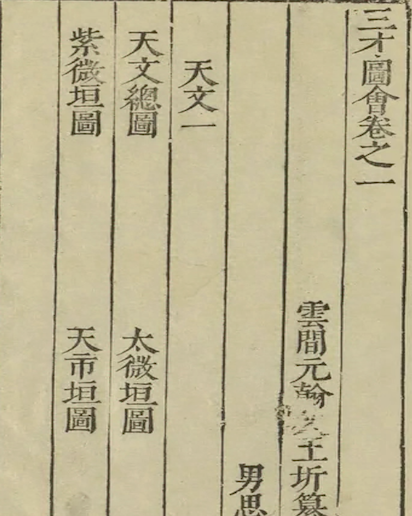 三才圖會卷之一
雲間元翰王圻纂
男思
天文一
天文總圖 太微垣圖
紫微垣圖 天市垣圖